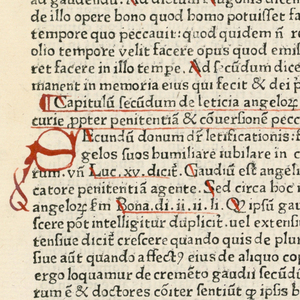 ad gaudendū. Ad dictum Augonis dicen
de illo opere bono quod homo potuisset fa
tempore quo peccauit: quod quidem ñ re
olio tempore velit facere opus quod emis
ret facere in illo tempe. Ad sēcūdum dicen
manent in memoria eius qui fecit & dei p
¶ Capitulū secūdum de leticia angeloꝝ
curie ꝓpter penitentiā & cōuersionē pecc
Secundū donum dr̄ letificationis: r
gelos suos humiliare iubilare in c
rum. vñ Luc. xv. dicit. Gaudiū est angeli
catore penitentiā agente. Sed circa hoc i
angeloꝝ ẜm Bona. di. ii. ii. li. Q ipsū gau
scere pōt intelligitur dupliciť. uel extensiu
tensiue dicit̄ crescere quando quis de plu
siue aūt quando affectꝰ eius de aliquo cop
ergo loquamur de cremēto gaudii secūdū
rum ē & doctores cōiter sentiūt ꝙ ipsis b